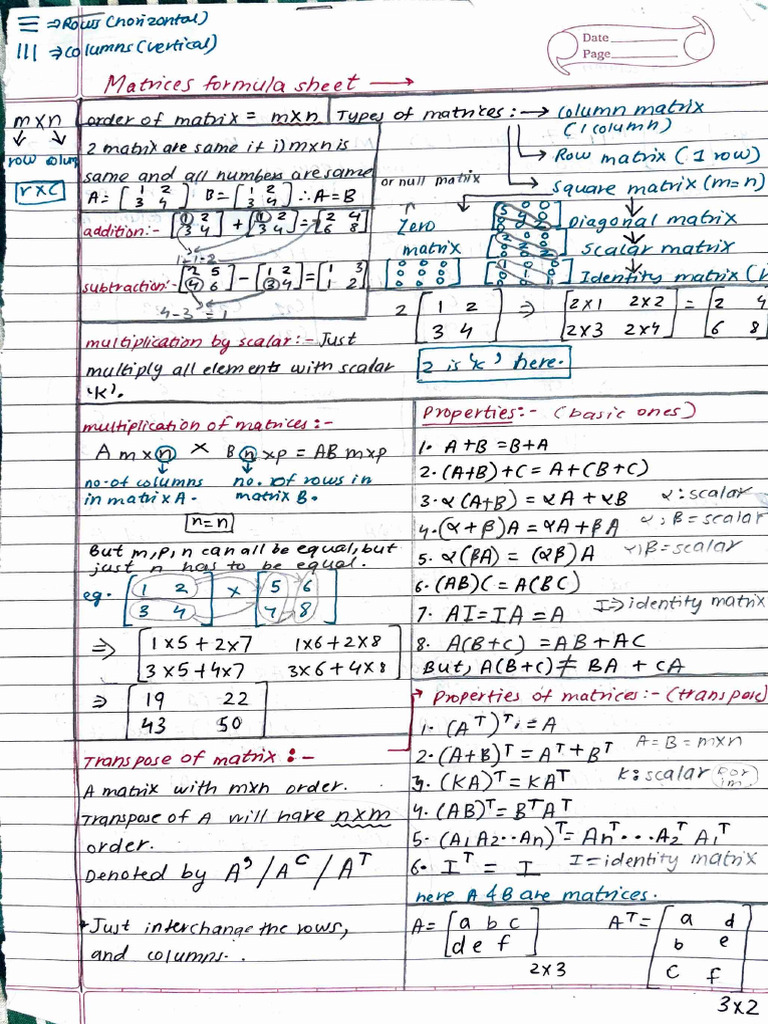 ⇒ Rows (horizontal)
||| ⇒ columns (vertical)
Date
Page
Matrices formula sheet →
m×n
row colum
r×c
order of matrix = m×n
2 matrix are same it i) m×n is
same and all numbers are same
A = [1 2
3 4] B = [1 2
3 4] ∴ A = B
addition:- [1 2
3 4] + [1 2
3 4] = [2 4
6 8]
1+1=2
subtraction:- [2 5
4 6] − [1 2
3 4] = [1 3
1 2]
4-3 = 1
Types of matrices: → column matrix
(1 column)
→ Row matrix (1 row)
→ Square matrix (m=n)
Diagonal matrix
Scalar matrix
Identity matrix
or null matrix
Zero
matrix
[0 0
0 0
0 0]
multiplication by scalar:- Just
multiply all elements with scalar
'K'.
2 [1 2
3 4] ⇒ [2×1 2×2
2×3 2×4] = [2 4
6 8]
2 is 'k' here.
multiplication of matrices:-
A m×n × B n×p = AB m×p
no. of columns
in matrix A.
no. of rows in
matrix B.
n=n
But m, p, n can all be equal, but
just n has to be equal.
eg. [1 2
3 4] × [5 6
7 8]
⇒ [1×5+2×7 1×6+2×8
3×5+4×7 3×6+4×8]
⇒ [19 22
43 50]
Properties:- (basic ones)
1. A+B = B+A
2. (A+B)+C = A+(B+C)
3. α(A+B) = αA + αB α: scalar
4. (α+β)A = αA+βA α, β = scalar
5. α(βA) = (αβ)A α, β = scalar
6. (AB)C = A(BC)
7. AI = IA = A I ⇒ identity matrix
8. A(B+C) = AB + AC
But, A(B+C) ≠ BA + CA
Transpose of matrix:-
A matrix with m×n order.
Transpose of A will have n×m
order.
Denoted by A' / Aᶜ / Aᵀ
* Just interchange the rows,
and columns.
Properties of matrices:- (transpose)
1. (Aᵀ)ᵀ = A
2. (A+B)ᵀ = Aᵀ + Bᵀ A = B = m×n
3. (KA)ᵀ = KAᵀ K: scalar
4. (AB)ᵀ = BᵀAᵀ
5. (A₁A₂··An)ᵀ = Anᵀ···A₂ᵀ A₁ᵀ
6. Iᵀ = I I = identity matrix
here A & B are matrices.
A = [a b c
d e f] 2×3
Aᵀ = [a d
b e
c f] 3×2